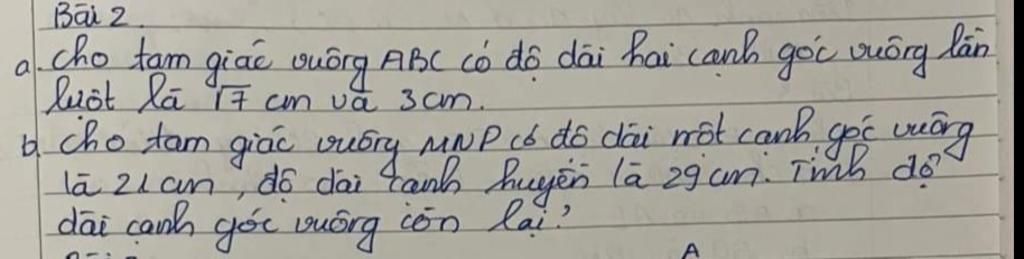 Bài 2
a. Cho tam giác vuông ABC có độ dài hai cạnh góc vuông lần
lượt là √7 cm và 3cm.
b. Cho tam giác vuông MNP có độ dài một cạnh góc vuông
là 21 cm, độ dài cạnh huyền là 29 cm. Tính độ
dài cạnh góc vuông còn lại?
A